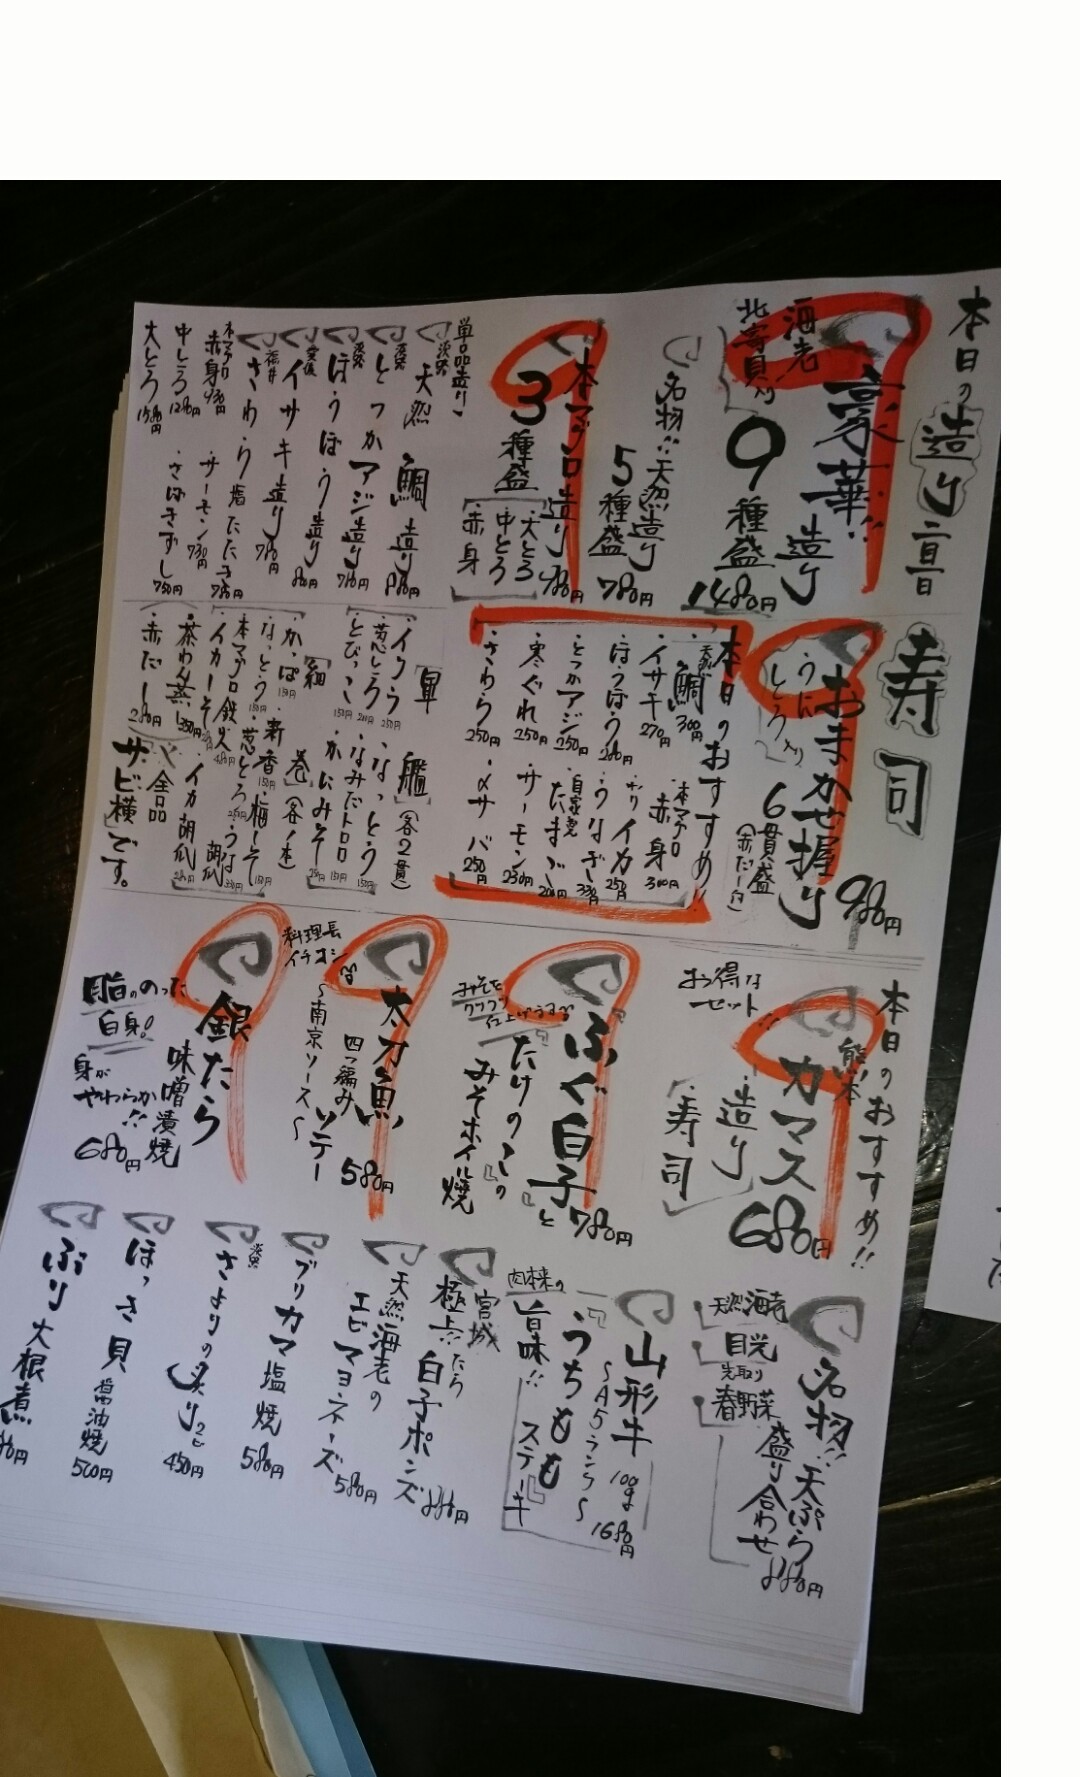 本日の造り
豪華!!造り
海老
北寄貝入り
9種盛
1480円
名物!!天然造り
5種盛
780円
本マグロ造り
3種盛
大とろ
中とろ
赤身
単品造り
淡路
天然鯛造り
880円
淡路
とつかアジ造り
780円
淡路
ほうぼう造り
イサキ造り
780円
福井
さわら塩たたき
780円
本マグロ
赤身
サーモン
中とろ
さばきずし
750円
大とろ
寿司
おまかせ握り
うに
とろ入り
6貫盛
(赤だし付)
980円
本日のおすすめ!!
天然鯛
300円
イサキ
270円
ほうぼう
とつかアジ
250円
寒ぐれ
250円
さわら
250円
本マグロ
赤身
300円
イカ
250円
うなぎ
330円
自家製
たまご
サーモン
〆サバ
250円
軍艦
(各2貫)
イクラ
250円
葱とろ
とびっこ
150円
なっとう
150円
なみだトロロ
150円
かにみそ
細巻
(各1本)
かっぱ
150円
なっとう
150円
本マグロ鉄火
イカしそ
新香
150円
梅しそ
150円
葱とろ
うな胡瓜
イカ胡瓜
茶わん蒸
赤だし
全品
サビ横です。
本日のおすすめ!!
熊本
カマス
680円
お得な
セット
造り
寿司
ふぐ白子と
たけのこの
みそホイル焼
780円
太刀魚
四つ編みソテー
〜南京ソース〜
580円
料理長
イチオシ
銀たら
味噌漬焼
脂ののった
白身!
身が
やわらか!!
680円
名物!!天ぷら
盛り合わせ
880円
天然海老
目光
先取り
春野菜
山形牛
〜A5ランク〜
うちもも
ステーキ
肉本来の
旨味!!
100g
1680円
宮城
極上!!たら
白子ポンズ
880円
天然海老の
エビマヨネーズ
580円
ブリカマ塩焼
580円
淡路
さよりの炙り
450円
ほっき貝
醤油焼
500円
ぶり大根煮